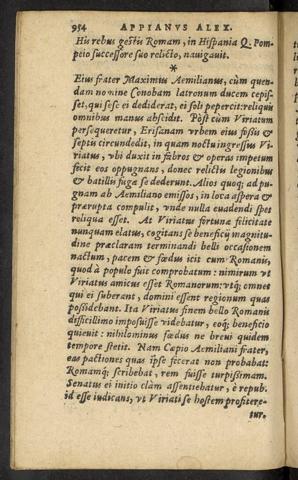 954 APPIANVS ALEX.
His rebus gestis Romam, in Hispania Q. Pom-
peio successore suo relicto, nauigauit.
*
Eius frater Maximus Aemilianus, cùm quen-
dam nomine Conobam latronum ducem cepis-
set, qui sese ei dediderat, ei soli pepercit: reliquis
omnibus manus abscidit. Pòst cùm Viriatum
persequeretur, Erisanam vrbem eius fossis &
septis circundedit, in quam noctu ingressus Vi-
riatus, vbi duxit in fabros & operas impetum
fecit eos oppugnans, donec relictis legionibus
& batillis fuga se dederunt. Alios quoq; ad pu-
gnam ab Aemiliano emissos, in loca aspera &
præerupta compulit, vnde nulla euadendi spes
reliqua esset. At Viriatus fortunæ felicitate
nunquam elatus, cogitans se beneficij magnitu-
dine præclaram terminandi belli occasionem
nactum, pacem & fœdus icit cum Romanis,
quod à populo fuit comprobatum: nimirum vt
Viriatus amicus esset Romanorum: vtq; omnes
qui ei suberant, domini essent regionum quas
possidebant. Ita Viriatus finem bello Romanis
difficillimo imposuisse videbatur, eoq; beneficio
quieuit: nihilominus fœdus ne breui quidem
tempore stetit. Nam Cæpio Aemiliani frater,
eas pactiones quas ipse fecerat non probabat:
Romamq; scribebat, rem fuisse turpissimam.
Senatus ei initio clàm assentiebatur, è repub.
id esse iudicans, vt Viriati se hostem profitere-
tur.